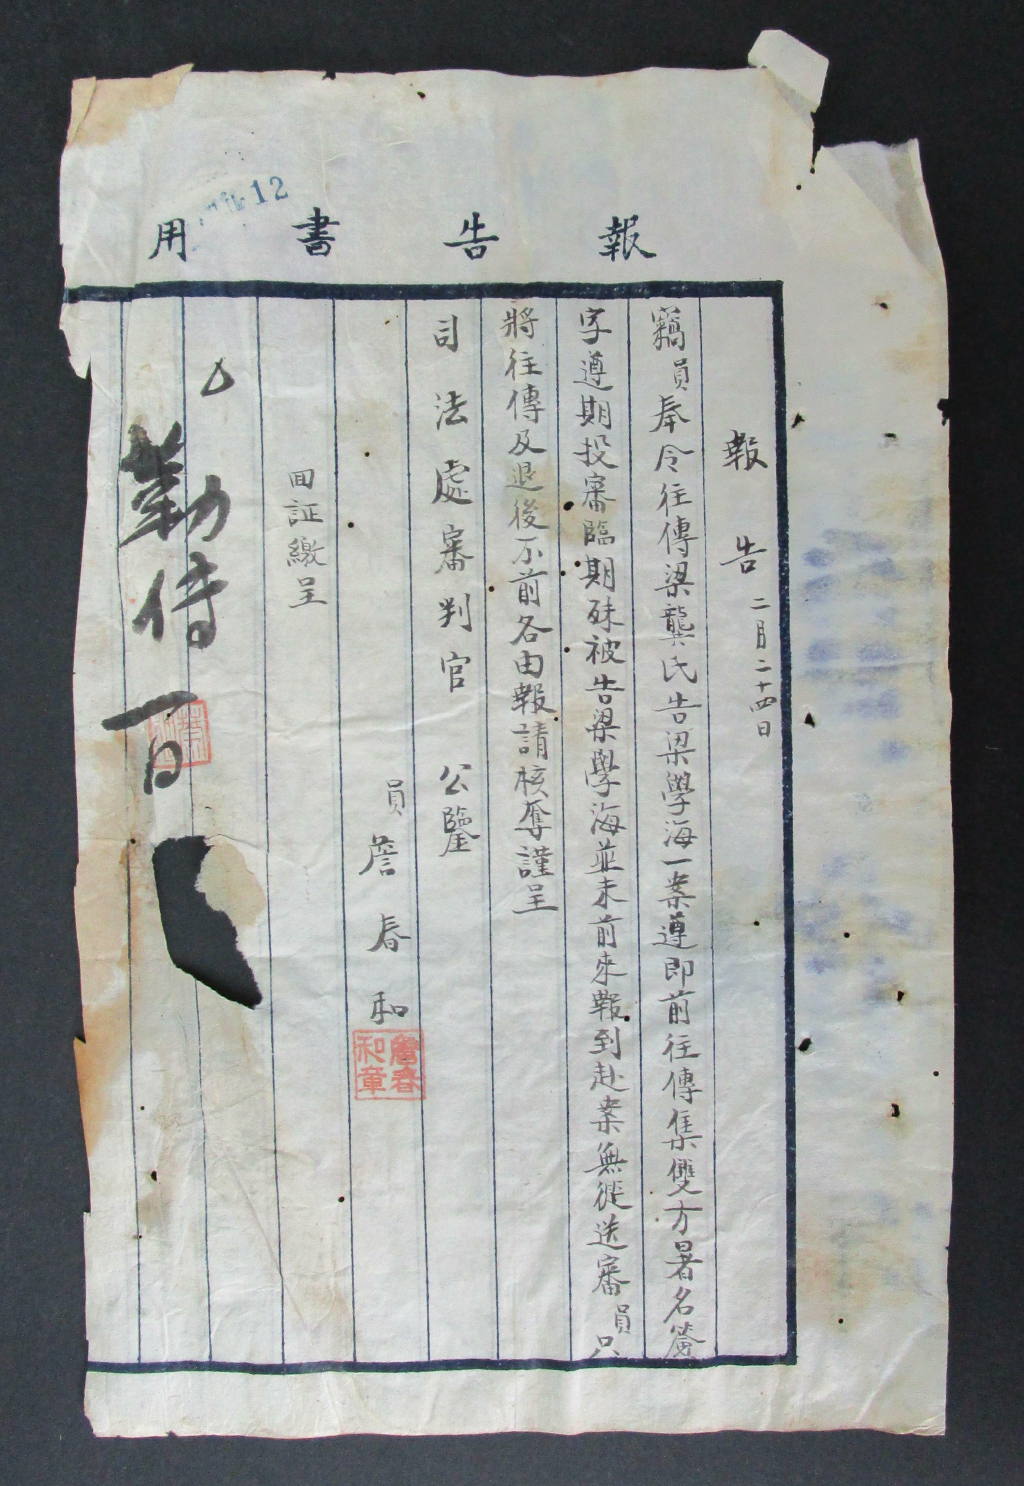 12
報告書用
報告 二月二十四日
竊員奉令往傳梁龔氏告梁學海一案遵即前往傳集雙方署名簽
字遵期投審臨期砞被告梁學海並未前來報到赴案無從送審員只
將往傳及退後不前各由報請核奪謹呈
司法處審判官 公鑒
員詹春和
詹春和章
回証繳呈
勒傳